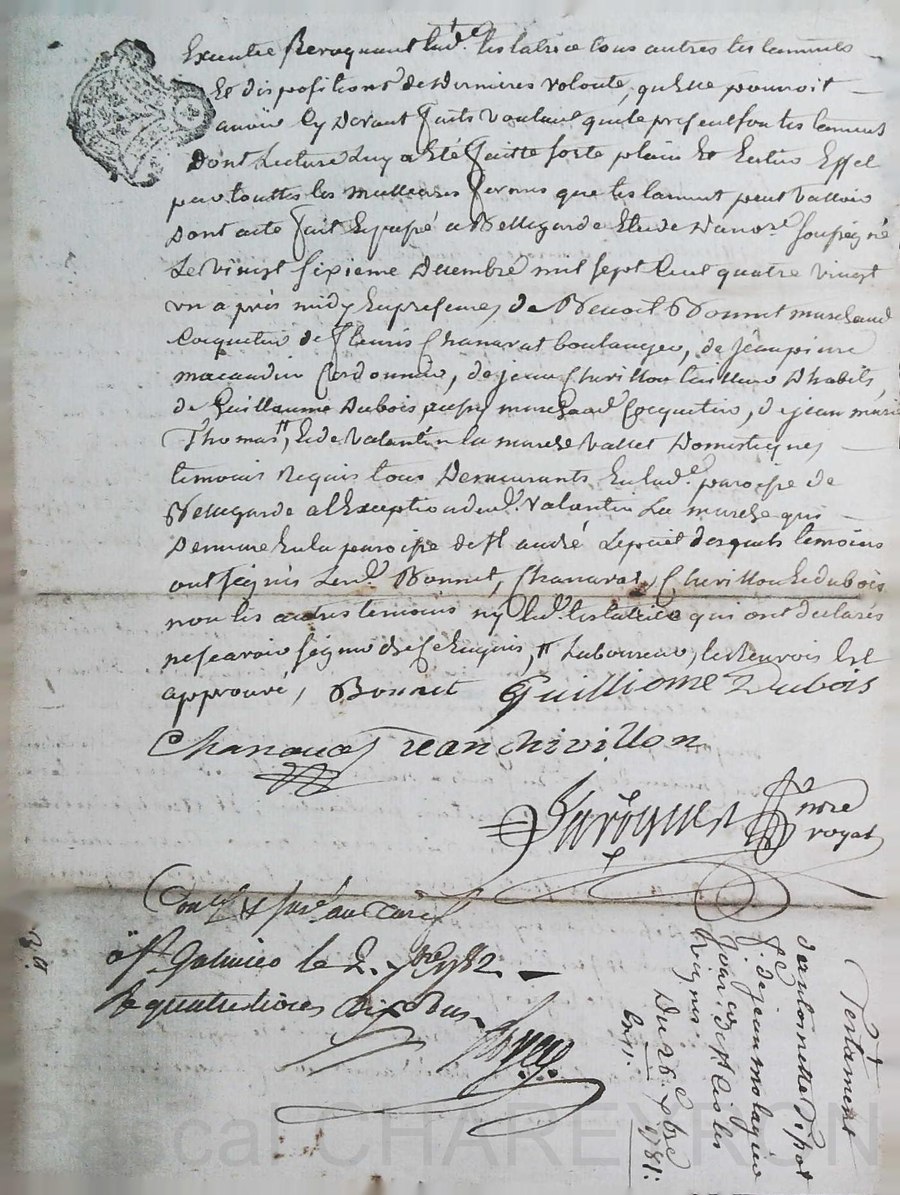 Executée Revoquant lad.e testatrice tous autres testamens
Et dispositions de dernieres volonté, qu'elle pourroit
avoir Cy devant faits voulant que le present son testament
dont Lecture Luy a Eté faitte sorte plain Et Entier Effet
par touttes les meilleures formes que testament peut valloir
dont acte fait Et passé a Bellegarde Etude du no.re soussigné
Le vingt sixieme decembre mil sept cent quatre vingt
un apres midy En presences de Benoit Bonnet marchand
Coquetier de fleuris Chanavat boulanger, de jean pierre
macaudier Cordonnier, de jean Chivillon tailleur d'habits,
de Guillaume dubois, aussy marchand Cocquetier, de jean marie
Thomas, Et de valantin la marche vallet domestiques
temoins Requis tous demeurants En lad.e paroisse de
Bellegarde a l'Exception dud. valantin La marche qui
demeure En la paroisse de st andré Le puit desquels temoins
ont signés Led. Bonnet, Chanavat, Chivillon Et dubois
non les autres temoins ny lad.e testatrice qui ont declarés
ne scavoir signer de ce Enquis, Laboureur, les Renvois Est
approuvé, Bonnet Guilliome Dubois
Chanavat Jean chivillon
nore
royal
Con.lé &
a St Galmier le 2. 1782.
quatre livres dix sous
Testament
d'antoinette
f.e de jean
Du 26. Xbre
1781.
Exp.